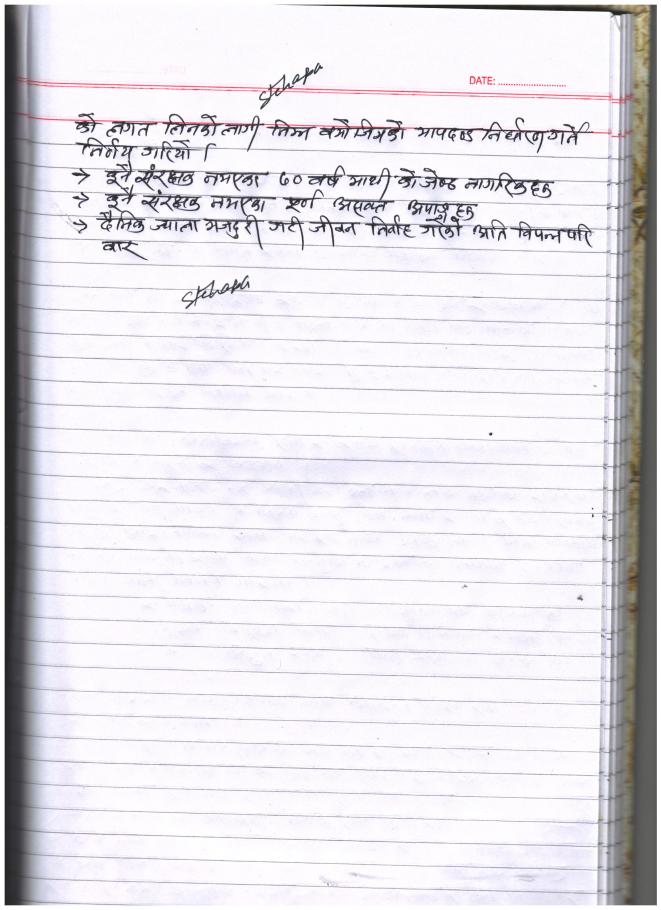 Sthapa
DATE: ..........................
को लगत लिनको लागी निम्न बमोजिमको मापदण्ड निर्धारण गर्ने
निर्णय गरियो ।
→ कुनै संरक्षक नभएका ७० वर्ष माथी को जेष्ठ नागरिकहरु
→ कुनै संरक्षक नभएका पूर्ण अशक्त अपाङ्गहरु
→ दैनिक ज्याला मजदुरी गरी जीवन निर्वाह गरेको अति विपन्न परि
वार
Sthapa